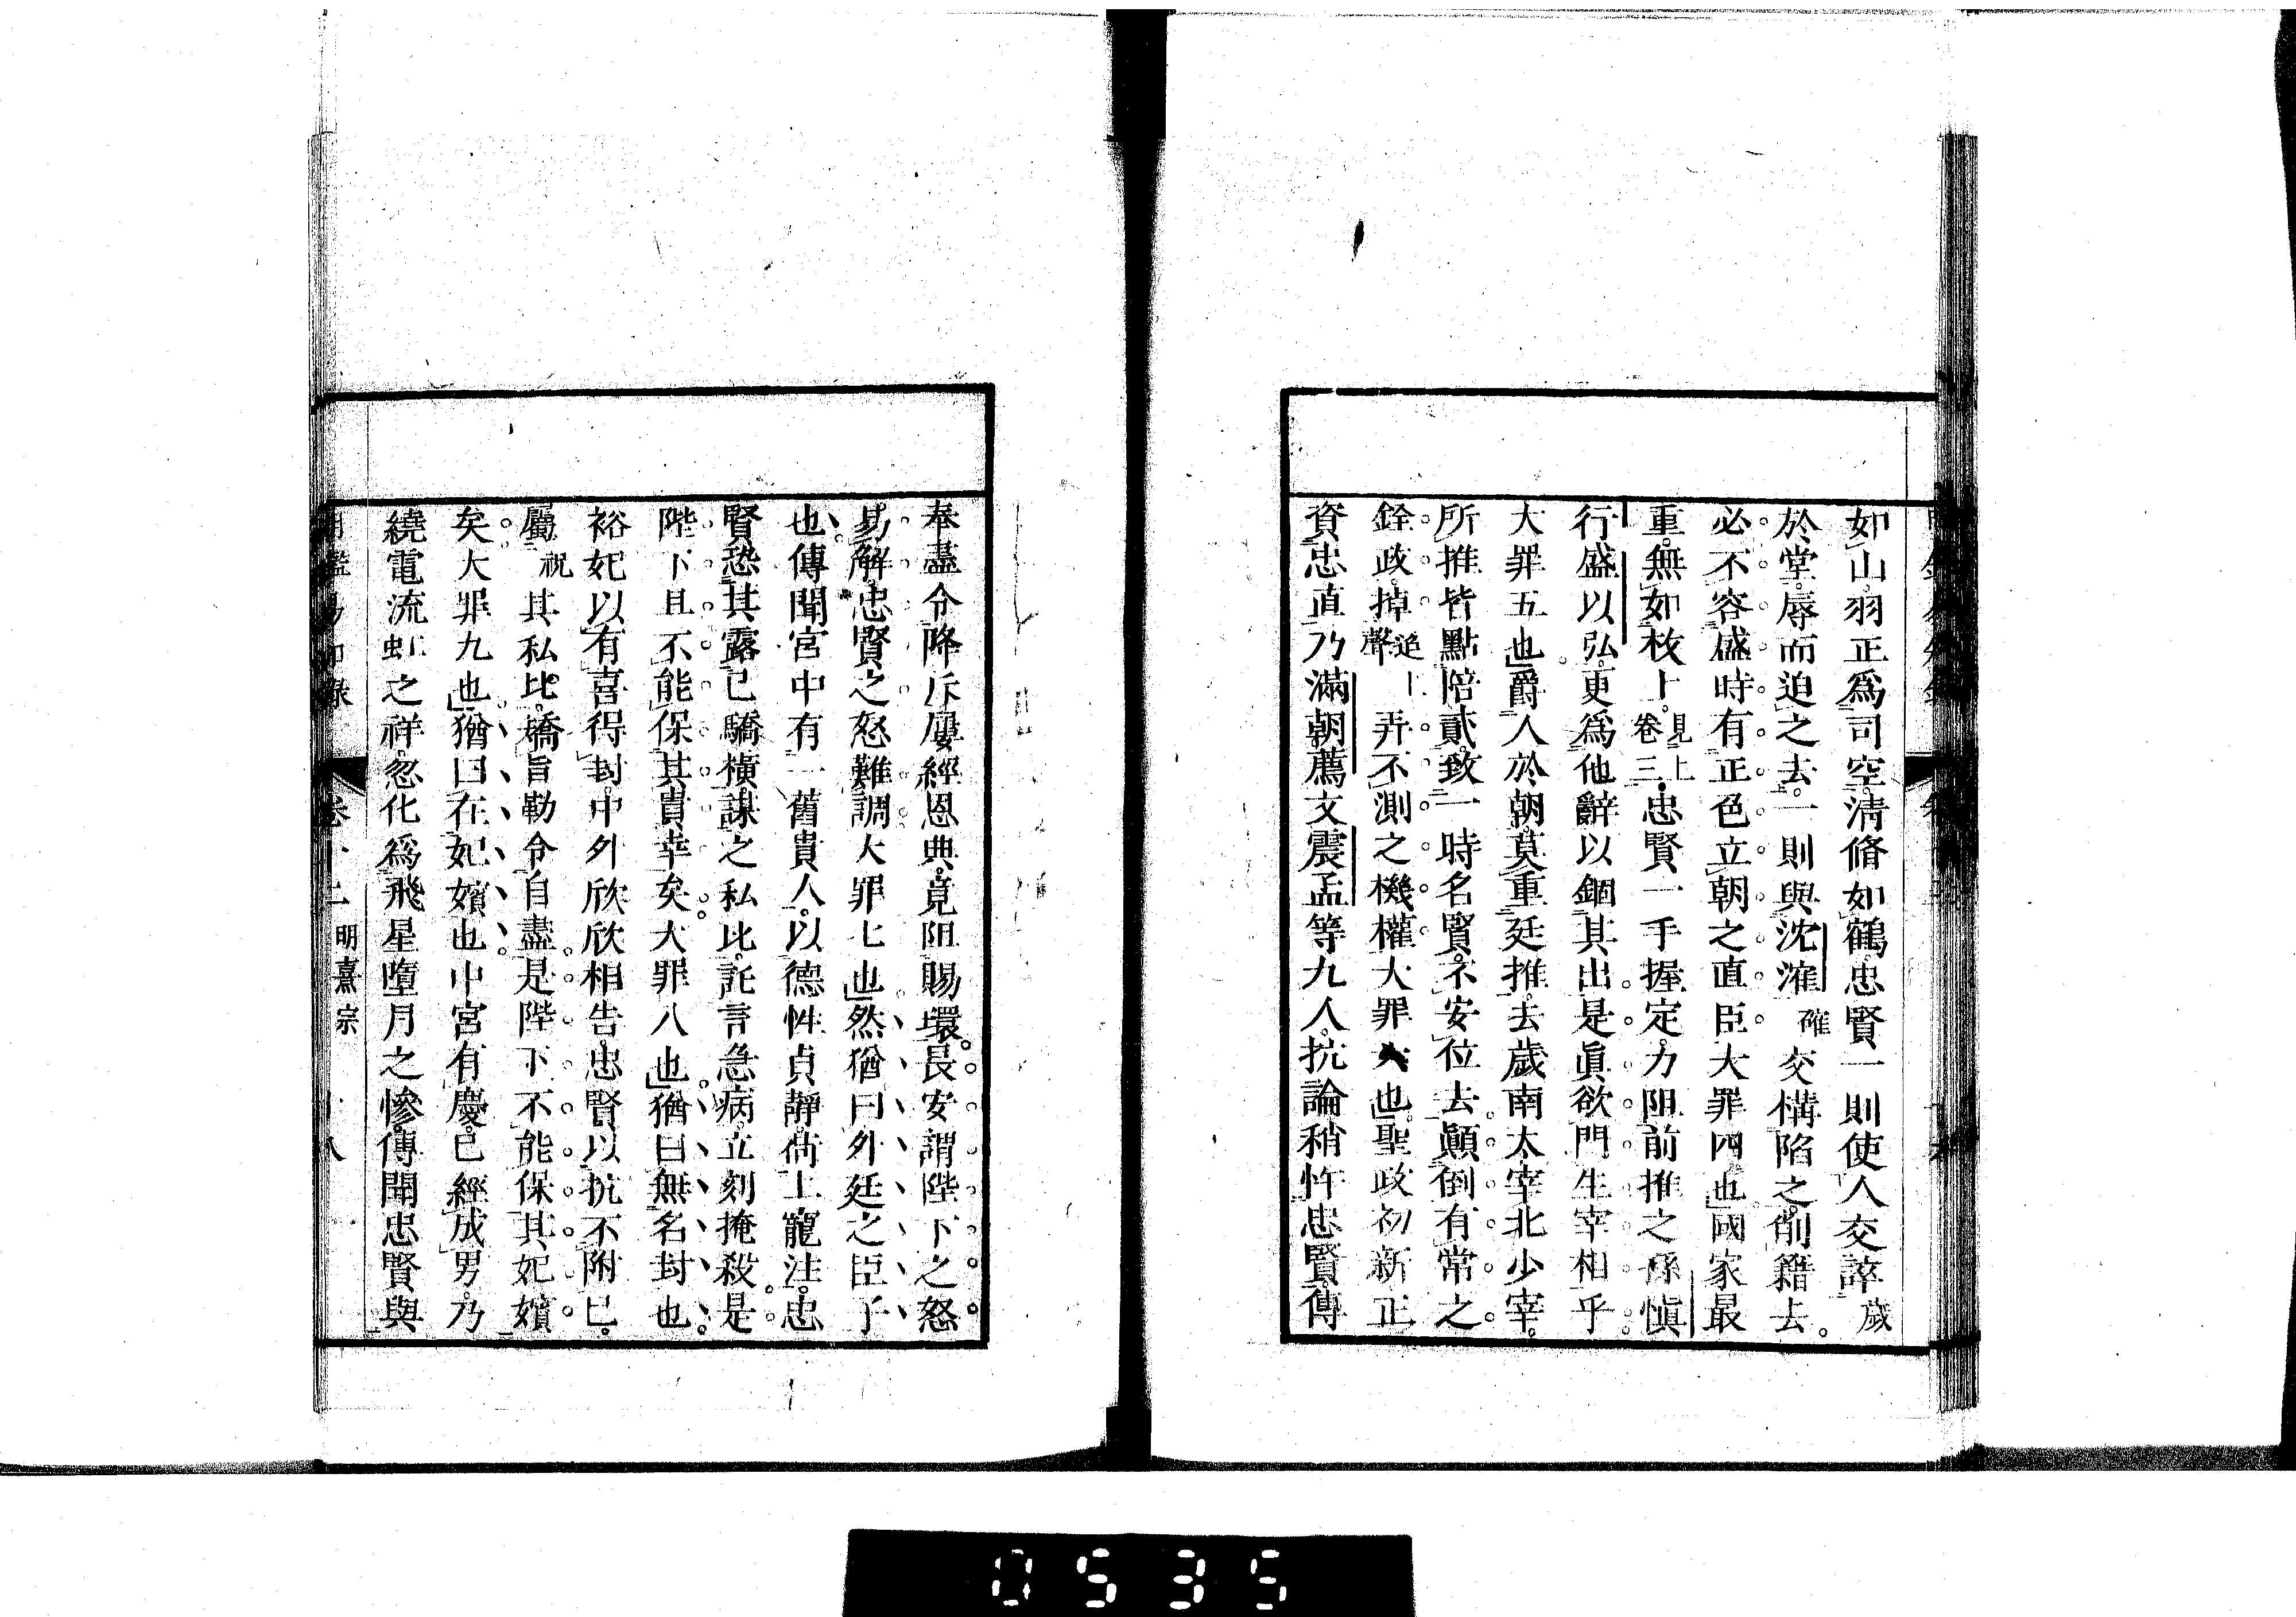 如山羽正爲司空清脩如鶴忠賢一則使人交誶歲
於堂辱而迫之去一則與沈㴶確交構陷之削籍去
必不容盛時有正色立朝之直臣大罪四也國家最
重無如枚卜見上卷三忠賢一手握定力阻前推之孫愼
行盛以弘更爲他辭以錮其出是眞欲門生宰相乎
大罪五也爵人於朝莫重廷推去歲南太宰北少宰
所推皆點陪貳致一時名賢不安位去顚倒有常之
銓政掉上聲弄不測之機權大罪六也聖政初新正
資忠直乃滿朝薦文震孟等九人抗論稍忤忠賢傳
奉盡令降斥屢經恩典竟阻賜環長安謂陛下之怒
易解忠賢之怒難調大罪七也然猶曰外廷之臣子
也傳聞宮中有一舊貴人以德性貞靜荷上寵注忠
賢恐其露己驕橫謀之私比託言急病立刻掩殺是
陛下且不能保其貴幸矣大罪八也猶曰無名封也
裕妃以有喜得封中外欣欣相告忠賢以抗不附己
屬祝其私比矯旨勒令自盡是陛下不能保其妃嬪
矣大罪九也猶曰在妃嬪也中宮有慶已經成男乃
繞電流虹之祥忽化爲飛星墮月之慘傳聞忠賢與
明熹宗
0535